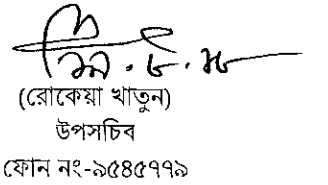 (রোকেয়া খাতুন)
উপসচিব
ফোন নং-৯৫৪৫৭৭৯